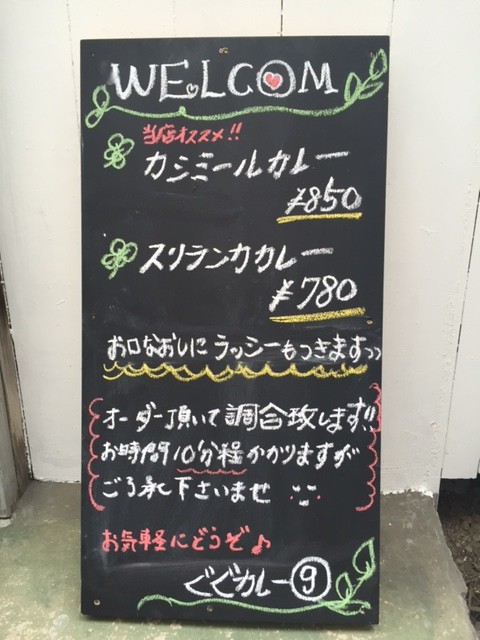 WELCOM
当店オススメ!!
カシミールカレー
¥850
スリランカカレー
¥780
お口なおしにラッシーもつきますっっ
オーダー頂いて調合致します!!
お時間10分程かかりますが
ごろ承下さいませ
お気軽にどうぞ♪
ぐぐカレー⑨